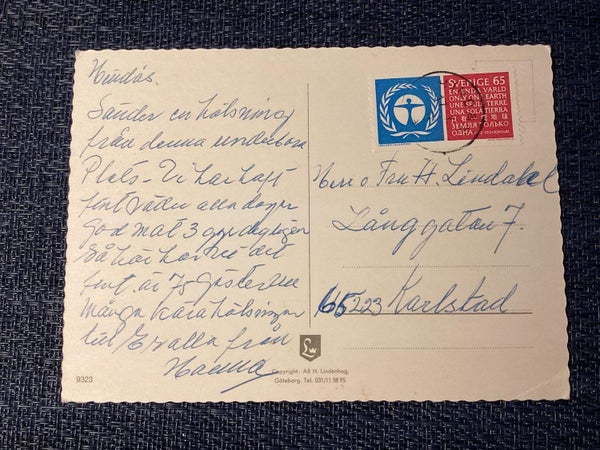 Hindås
Sänder en hälsning
från denna underbara
Plats - Vi har haft
fint väder alla dagar
God mat 3 ggr dagligen
Så här har vi det
fint. är 75 Gäster
Många kära hälsningar
till Er alla från
SVERIGE 65
EN ENDA VÄRLD
ONLY ONE EARTH
UNE SEULE TERRE
UNA SOLA TIERRA
ЗЕМЛЯ ТОЛЬКО
ОДНА
Herr o Fru H. Lindahl
Långgatan 7.
65223 Karlstad
L
Copyright: AB H. Lindenhag,
Göteborg. Tel. 031/11 58 95
9323